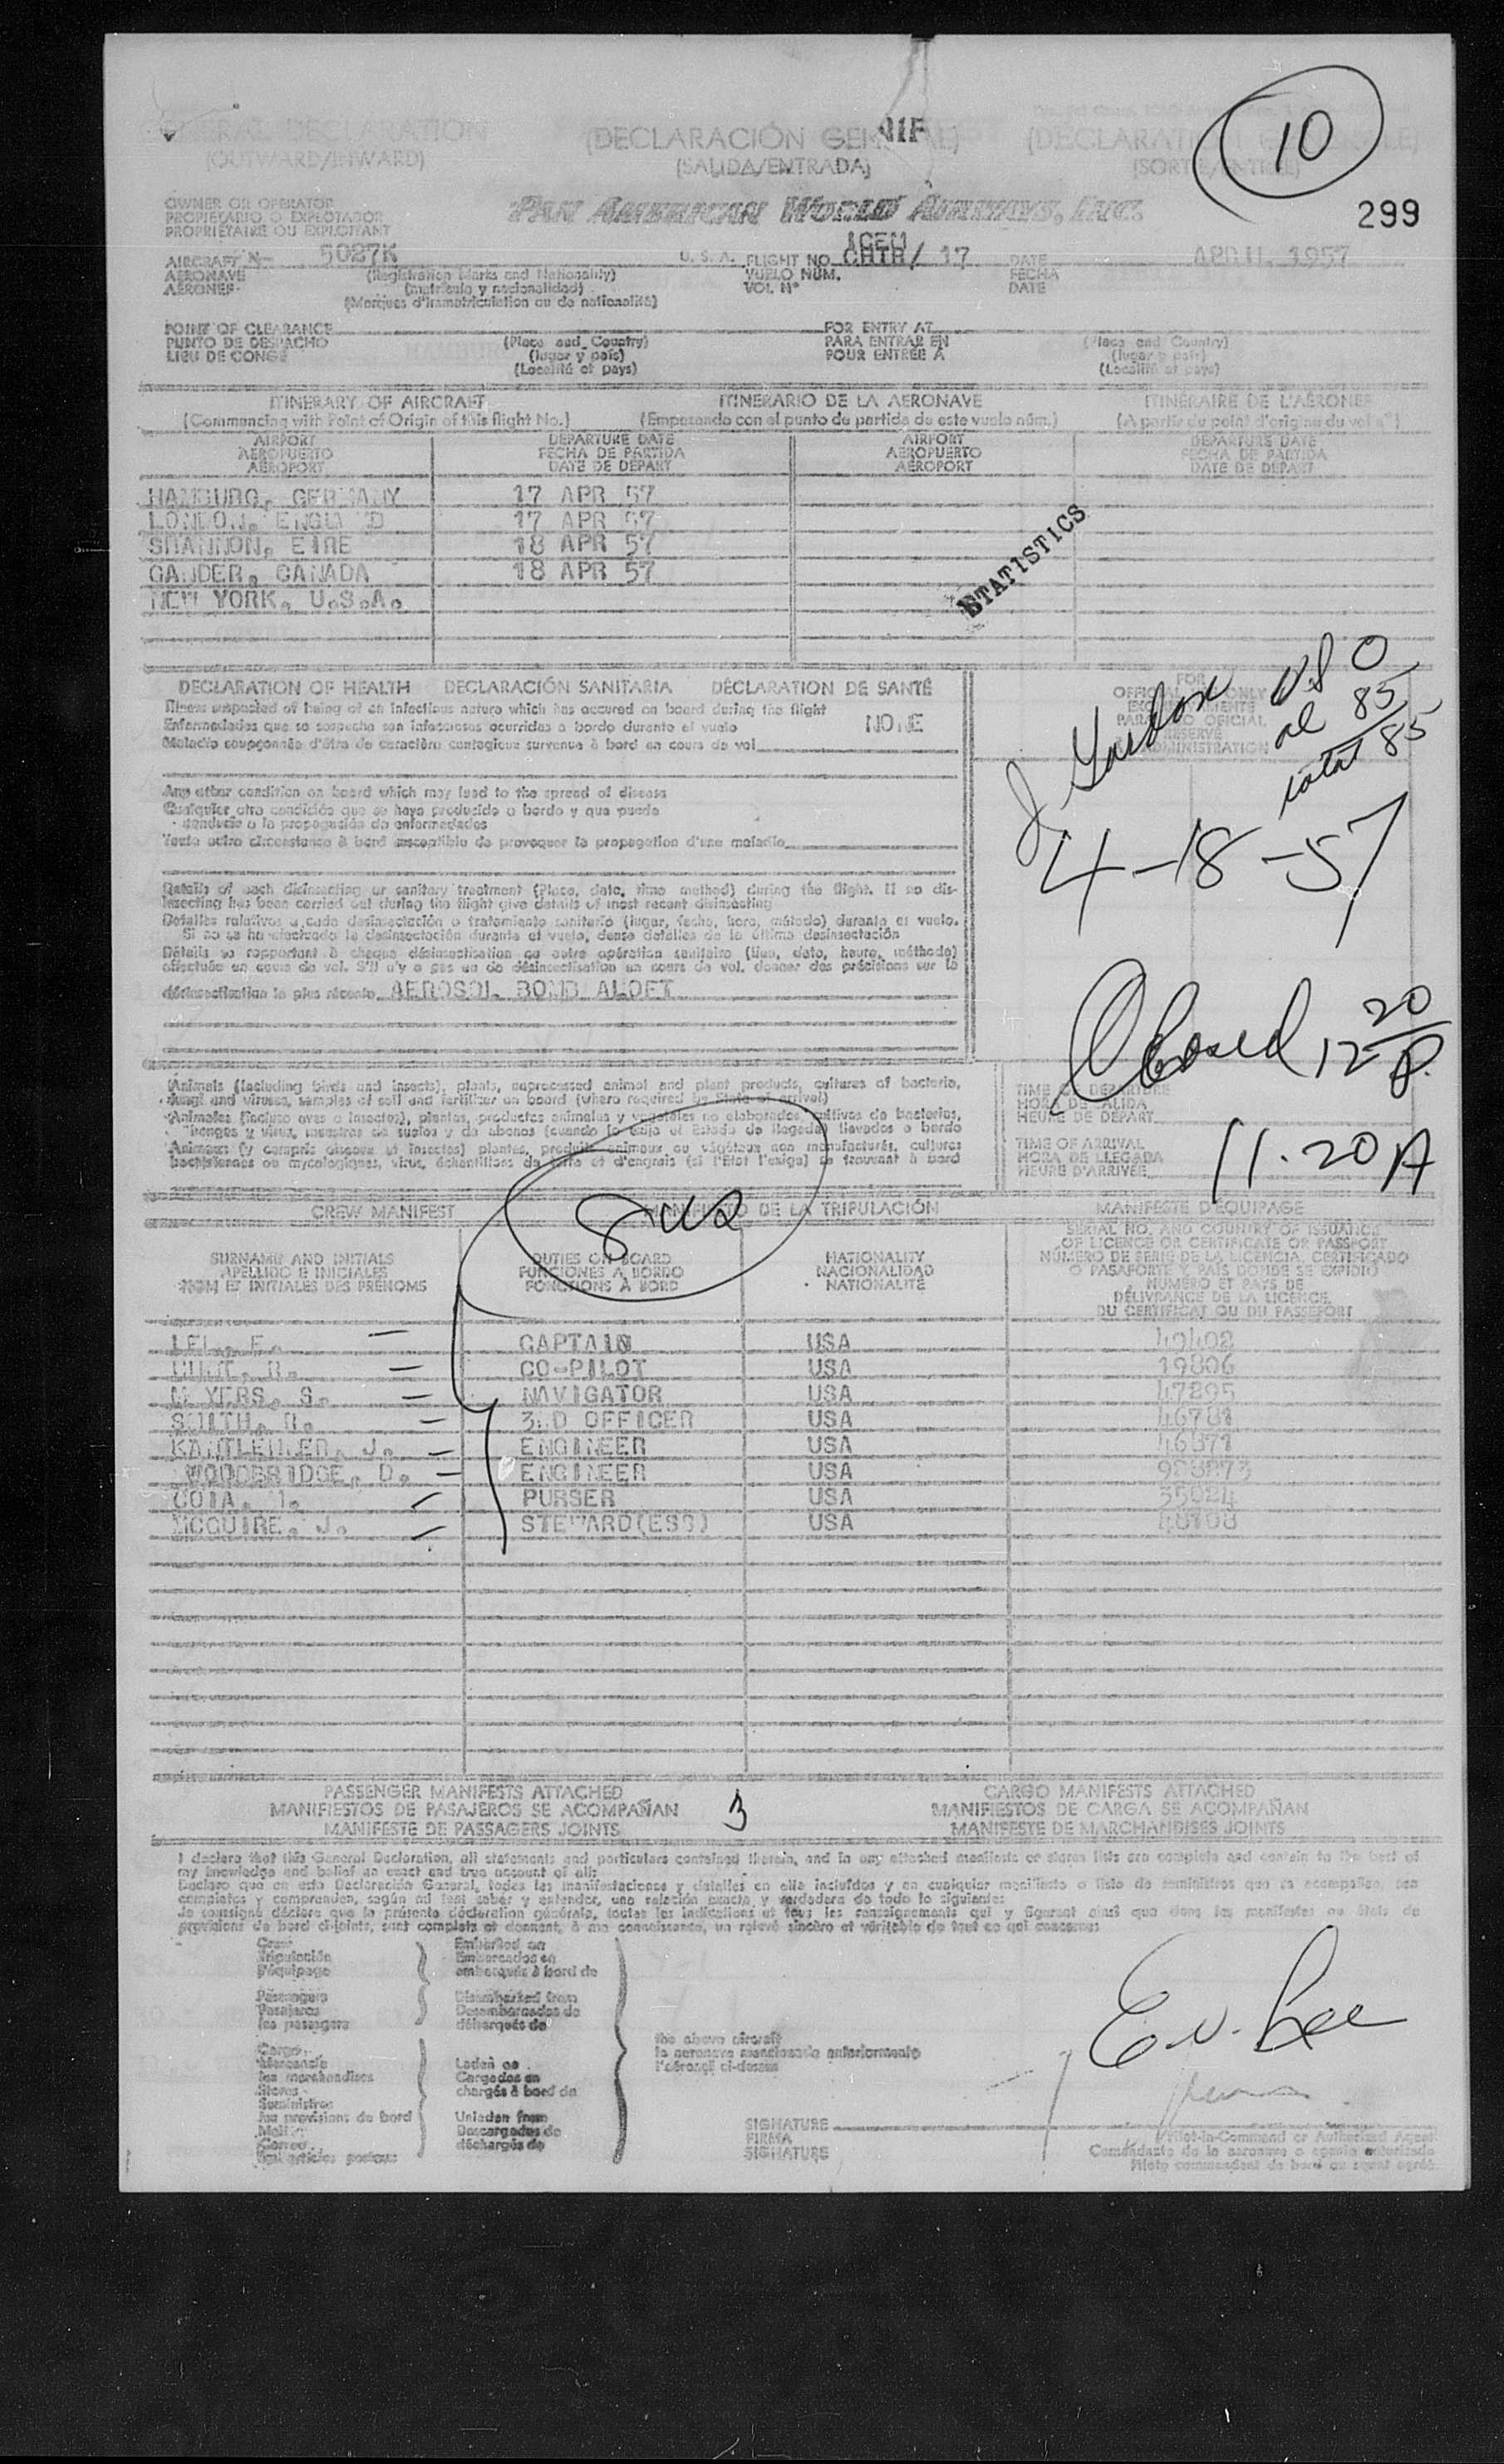 GENERAL DECLARATION
(OUTWARD/INWARD)
(DECLARACIÓN GENERAL)
(SALIDA/ENTRADA)
(SORTIE/ENTRÉE)
10
299
OWNER OR OPERATOR
PROPIETARIO O EXPLOTADOR
PROPRIÉTAIRE OU EXPLOITANT
PAN AMERICAN WORLD AIRWAYS, INC.
AIRCRAFT N- 5027K U. S. A. FLIGHT NO. CHTR/ 17 DATE APRIL 1957
AERONAVE (Registration Marks and Nationality) VUELO NÚM. FECHA
AÉRONEF (matrícula y nacionalidad) VOL Nº DATE
(Marques d'immatriculation ou de nationalité)
POINT OF CLEARANCE (Place and Country) FOR ENTRY AT (Place and Country)
PUNTO DE DESPACHO (lugar y país) PARA ENTRAR EN (lugar y país)
LIEU DE CONGÉ (Localité et pays) POUR ENTRÉE À (Localité et pays)
ITINERARY OF AIRCRAFT ITINERARIO DE LA AERONAVE ITINÉRAIRE DE L'AÉRONEF
(Commencing with Point of Origin of this flight No.) (Empezando con el punto de partida de este vuelo núm.) (A partir du point d'origine du vol nº)
AIRPORT DEPARTURE DATE AIRPORT DEPARTURE DATE
AEROPUERTO FECHA DE PARTIDA AEROPUERTO FECHA DE PARTIDA
AÉROPORT DATE DE DÉPART AÉROPORT DATE DE DÉPART
HAMBURG, GERMANY 17 APR 57
LONDON, ENGLAND 17 APR 57
SHANNON, EIRE 18 APR 57
GANDER, CANADA 18 APR 57
NEW YORK, U.S.A.
STATISTICS
DECLARATION OF HEALTH DECLARACIÓN SANITARIA DÉCLARATION DE SANTÉ
Illness suspected of being of an infectious nature which has occured on board during the flight
Enfermedades que se sospecha son infecciosas ocurridas a bordo durante el vuelo NONE
Maladie soupçonnée d'être de caractère contagieux survenue à bord en cours de vol
FOR
OFFICIAL USE ONLY
0
al 85
total 85
4-18-57
Any other condition on board which may lead to the spread of disease
Cualquier otra condición que se haya producido a bordo y que pueda
conducir a la propagación de enfermedades
Toute autre circonstance à bord susceptible de provoquer la propagation d'une maladie
Details of each disinsecting or sanitary treatment (Place, date, time method) during the flight. If no dis-
insecting has been carried out during the flight give details of most recent disinsecting
Detalles relativos a cada desinsectación o tratamiento sanitario (lugar, fecha, hora, método) durante el vuelo.
Si no se ha efectuado la desinsectación durante el vuelo, dense detalles de la última desinsectación
Détails se rapportant à chaque désinsectisation ou autre opération sanitaire (lieu, date, heure, méthode)
effectuée en cours de vol. S'il n'y a pas eu de désinsectisation en cours de vol, donner des précisions sur la
désinsectisation la plus récente AEROSOL BOMB ALOFT
Closed 12 20 P.
Animals (including birds and insects), plants, unprocessed animal and plant products, cultures of bacteria,
fungi and viruses, samples of soil and fertilizer on board (where required by State of arrival)
Animales (incluso aves o insectos), plantas, productos animales y vegetales no elaborados, cultivos de bacterias,
hongos y virus, muestras de suelos y de abonos (cuando lo exija el Estado de llegada) llevados a bordo
Animaux (y compris oiseaux et insectes) plantes, produits animaux ou végétaux non manufacturés, cultures
bactériennes ou mycologiques, virus, échantillons de terre et d'engrais (si l'Etat l'exige) se trouvant à bord
TIME OF DEPARTURE
HORA DE SALIDA
HEURE DE DÉPART
TIME OF ARRIVAL
HORA DE LLEGADA
HEURE D'ARRIVÉE
11.20 A
CREW MANIFEST MANIFIESTO DE LA TRIPULACIÓN MANIFESTE D'ÉQUIPAGE
SURNAME AND INITIALS DUTIES ON BOARD NATIONALITY
APELLIDO E INICIALES FUNCIONES A BORDO NACIONALIDAD
NOM ET INITIALES DES PRÉNOMS FONCTIONS À BORD NATIONALITÉ
SERIAL NO. AND COUNTRY OF ISSUANCE
OF LICENCE OR CERTIFICATE OR PASSPORT
NÚMERO DE SERIE DE LA LICENCIA, CERTIFICADO
O PASAPORTE Y PAÍS DONDE SE EXPIDIÓ
NUMÉRO ET PAYS DE
DÉLIVRANCE DE LA LICENCE,
DU CERTIFICAT OU DU PASSEPORT
LEE, E. CAPTAIN USA 49402
CO-PILOT USA 19806
MEYERS, S. NAVIGATOR USA 47895
SMITH, 3RD OFFICER USA 46781
J. ENGINEER USA 46871
WOODBRIDGE, D. ENGINEER USA
PURSER USA 35024
MCGUIRE, J. STEWARD(ESS) USA 48108
PASSENGER MANIFESTS ATTACHED CARGO MANIFESTS ATTACHED
MANIFIESTOS DE PASAJEROS SE ACOMPAÑAN 3 MANIFIESTOS DE CARGA SE ACOMPAÑAN
MANIFESTE DE PASSAGERS JOINTS MANIFESTE DE MARCHANDISES JOINTS
I declare that this General Declaration, all statements and particulars contained therein, and in any attached manifests or stores lists are complete and contain to the best of
my knowledge and belief an exact and true account of all:
Declaro que en esta Declaración General, todas las manifestaciones y detalles en ella incluídos y en cualquier manifiesto o lista de suministros que se acompañan, son
completos y comprenden, según mi leal saber y entender, una relación exacta y verdadera de todo lo siguiente:
Je soussigné déclare que la présente déclaration générale, toutes les indications et tous les renseignements qui y figurent ainsi que dans les manifestes ou états de
provisions de bord ci-joints, sont complets et donnent, à ma connaissance, un relevé sincère et véritable de tout ce qui concerne:
Crew Embarked on
Tripulación Embarcados en
l'équipage embarqués à bord de
Passengers Disembarked from
Pasajeros Desembarcados de
les passagers débarqués de
Cargo
Mercancía
les marchandises
Stores
Suministros
les provisions de bord
Mail
Correo
les articles postaux
Laden on
Cargados en
chargés à bord de
Unladen from
Descargados de
déchargés de
the above aircraft
la aeronave mencionada anteriormente
l'aéronef ci-dessus
E. V. Lee
SIGNATURE
FIRMA
SIGNATURE
Pilot-in-Command or Authorized Agent
Comandante de la aeronave o agente autorizado
Pilote commandant de bord ou agent agréé